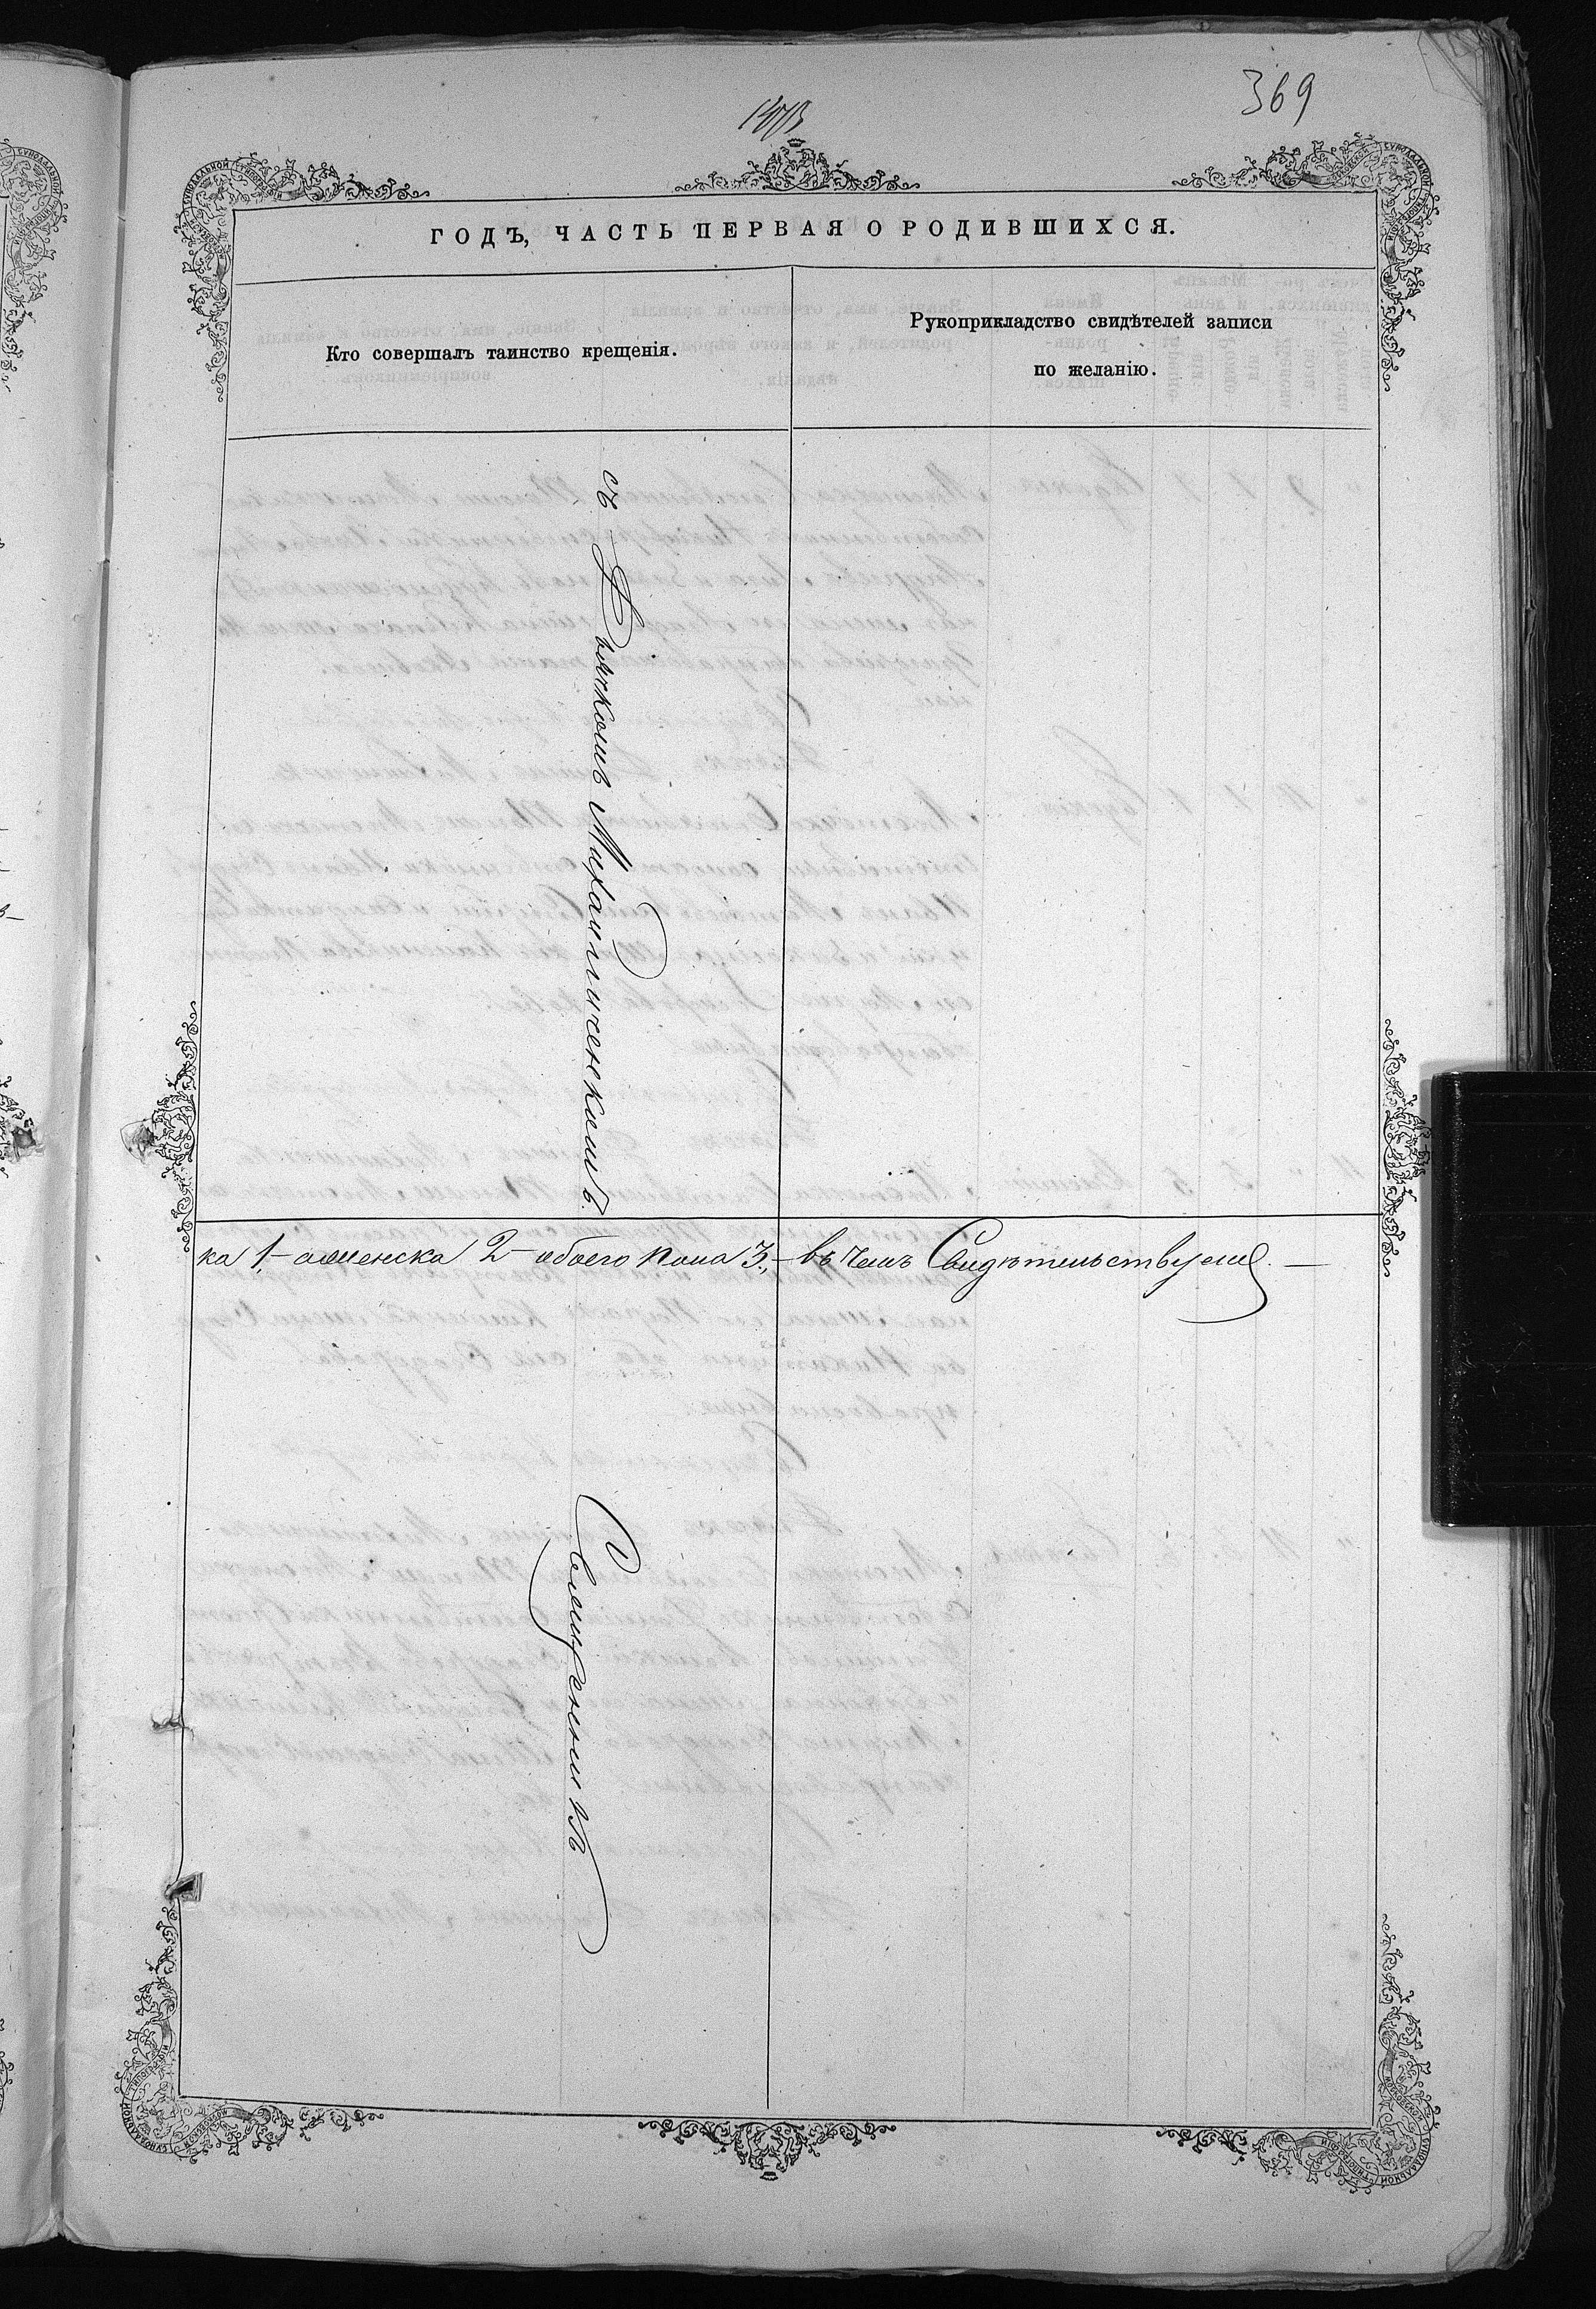 369
ГОДЪ, ЧАСТЬ ПЕРВАЯ О РОДИВШИХСЯ.
Кто совершалъ таинство крещенія.
Рукоприкладство свидѣтелей записи
по желанію.
съ Дьячкомъ Михайличенкомъ.
ка 1,– а женска 2– обоего пола 3,– въ чемъ Свидѣтельствуемъ.–
Священникъ